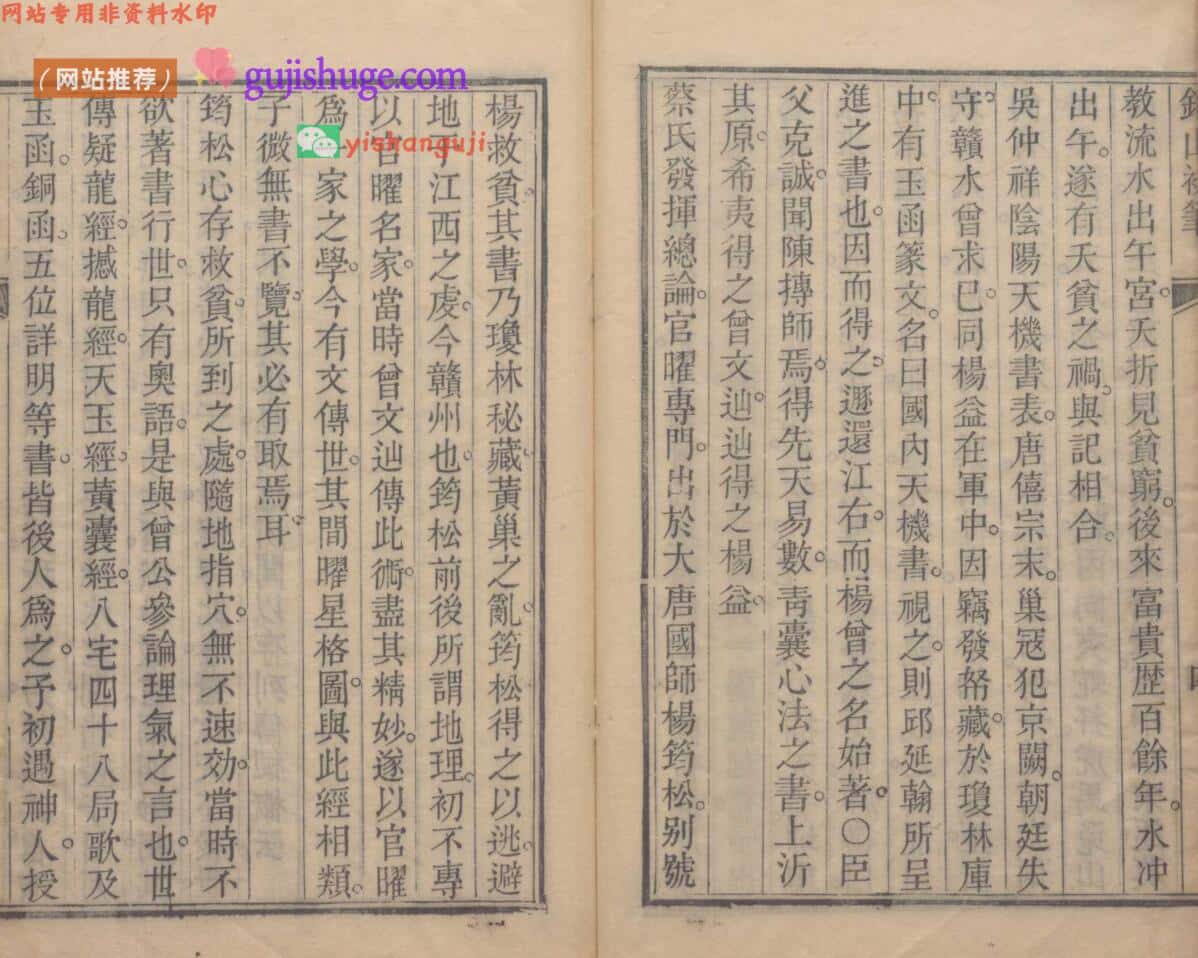 网站专用非资料水印
（网站推荐）
gujishuge.com
yishanguji
教流水出午宮夭折見貧窮後來富貴歴百餘年水冲
出午遂有夭貧之禍與記相合
吳仲祥陰陽天機書表唐僖宗末巢冦犯京闕朝廷失
守贛水曾求巳同楊益在軍中因竊發帑藏於瓊林庫
中有玉函篆文名曰國內天機書視之則邱延翰所呈
進之書也因而得之遯還江右而楊曾之名始著〇臣
父克誠聞陳摶師焉得先天易數靑囊心法之書上沂
其原希夷得之曾文辿辿得之楊益
蔡氏發揮總論官曜專門出於大唐國師楊筠松别號
楊救貧其書乃瓊林秘藏黃巢之亂筠松得之以逃避
地于江西之䖏今贛州也筠松前後所謂地理初不專
以官曜名家當時曾文辿傳此術盡其精妙遂以官曜
爲一家之學今有文傳世其間曜星格圖與此經相類
子微無書不覽其必有取焉耳
筠松心存救貧所到之處隨地指穴無不速効當時不
欲著書行世只有奧語是與曾公參論理氣之言也世
傳疑龍經撼龍經天玉經黃囊經八宅四十八局歌及
玉函銅函五位詳明等書皆後人爲之子初遇神人授